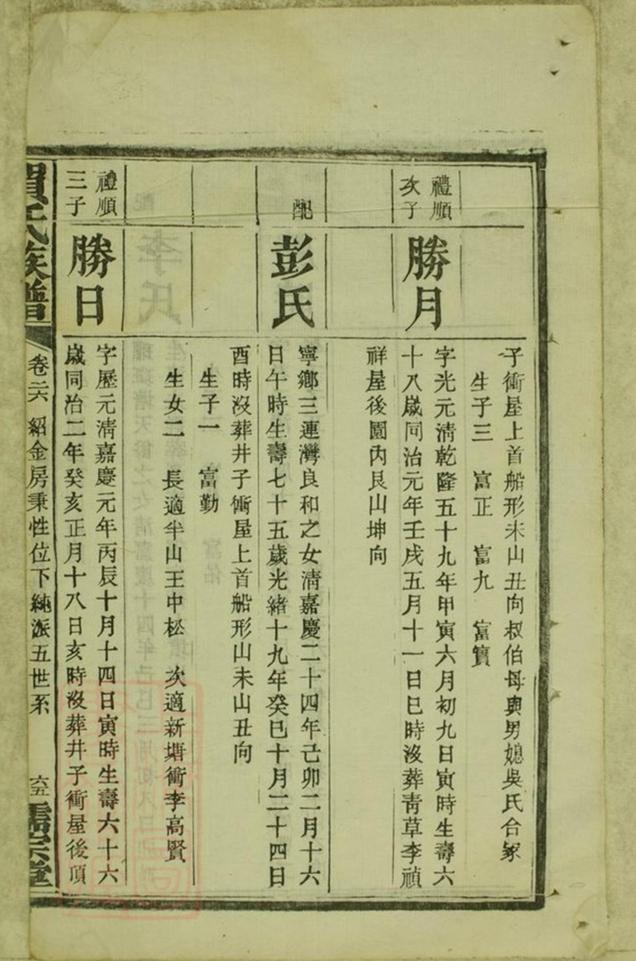 子衝屋上首船形未山丑向叔伯母與男媳吳氏合冢
生子三 富正 富九 富實
禮順次子
勝月
字光元清乾隆五十九年甲寅六月初九日寅時生壽六
十八歲同治元年壬戌五月十一日巳時沒葬青草李禎
祥屋後園內艮山坤向
配
彭氏
寧鄉三連灣良和之女清嘉慶二十四年己卯二月十六
日午時生壽七十五歲光緒十九年癸巳十月二十四日
酉時沒葬井子衝屋上首船形山未山丑向
生子一 富勤
生女二 長適半山王中松 次適新塘衝李高賢
禮順三子
勝日
字歷元清嘉慶元年丙辰十月十四日寅時生壽六十六
歲同治二年癸亥正月十八日亥時沒葬井子衝屋後頂
賀氏族譜
卷二六 紹金房秉性位下純派五世系
六五
儒宗堂